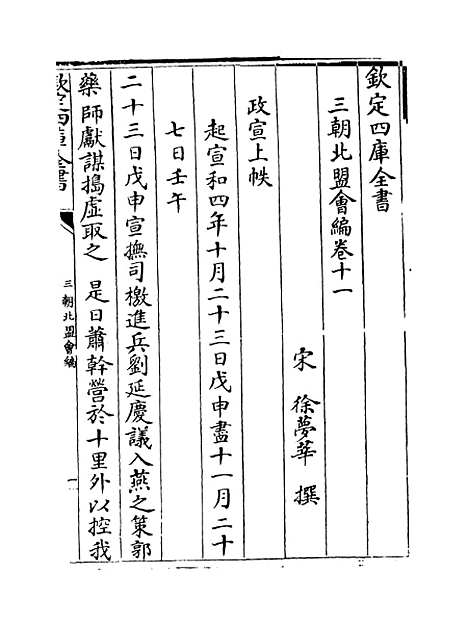 欽定四庫全書
三朝北盟會編卷十一
宋 徐夢莘 撰
政宣上帙
起宣和四年十月二十三日戊申盡十一月二十
七日壬午
二十三日戊申宣撫司檄進兵劉延慶議入燕之策郭
藥師獻謀搗虛取之 是日蕭幹營於十里外以控我
欽定四庫全書
三朝北盟會編
一